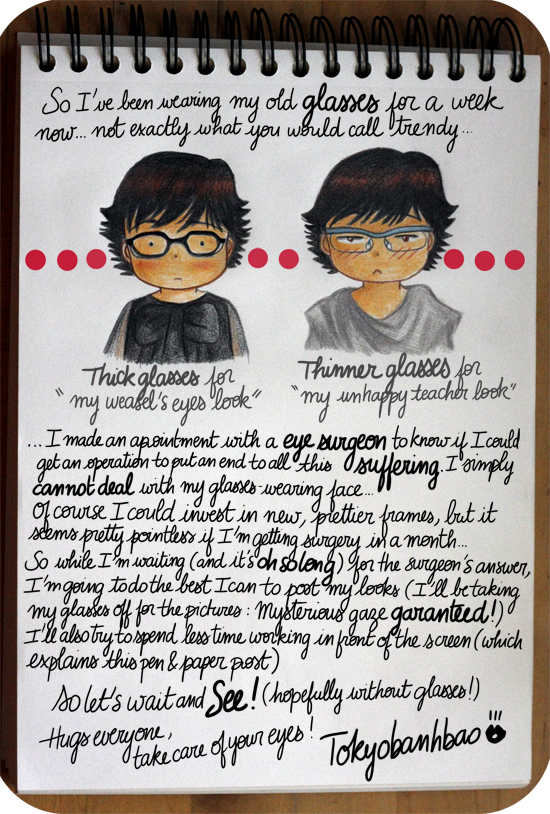 So I've been wearing my old glasses for a week
now... not exactly what you would call trendy...
Thick glasses for
"my weasel's eyes look"
Thinner glasses for
"my unhappy teacher look"
...I made an apointment with a eye surgeon to know if I could
get an operation to put an end to all this suffering. I simply
cannot deal with my glasses-wearing face...
Of course I could invest in new, prettier frames, but it
seems pretty pointless if I'm getting surgery in a month...
So while I'm waiting (and it's oh so long) for the surgeon's answer,
I'm going to do the best I can to post my looks (I'll be taking
my glasses off for the pictures: Mysterious gaze garanteed!)
I'll also try to spend less time working in front of the screen (which
explains this pen & paper post)
So let's wait and See! (hopefully without glasses!)
Hugs everyone,
take care of your eyes!
Tokyobanhbao